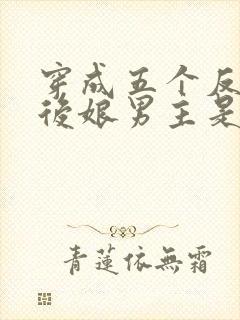 穿成五个反
後娘男主是
青蓮依無霜